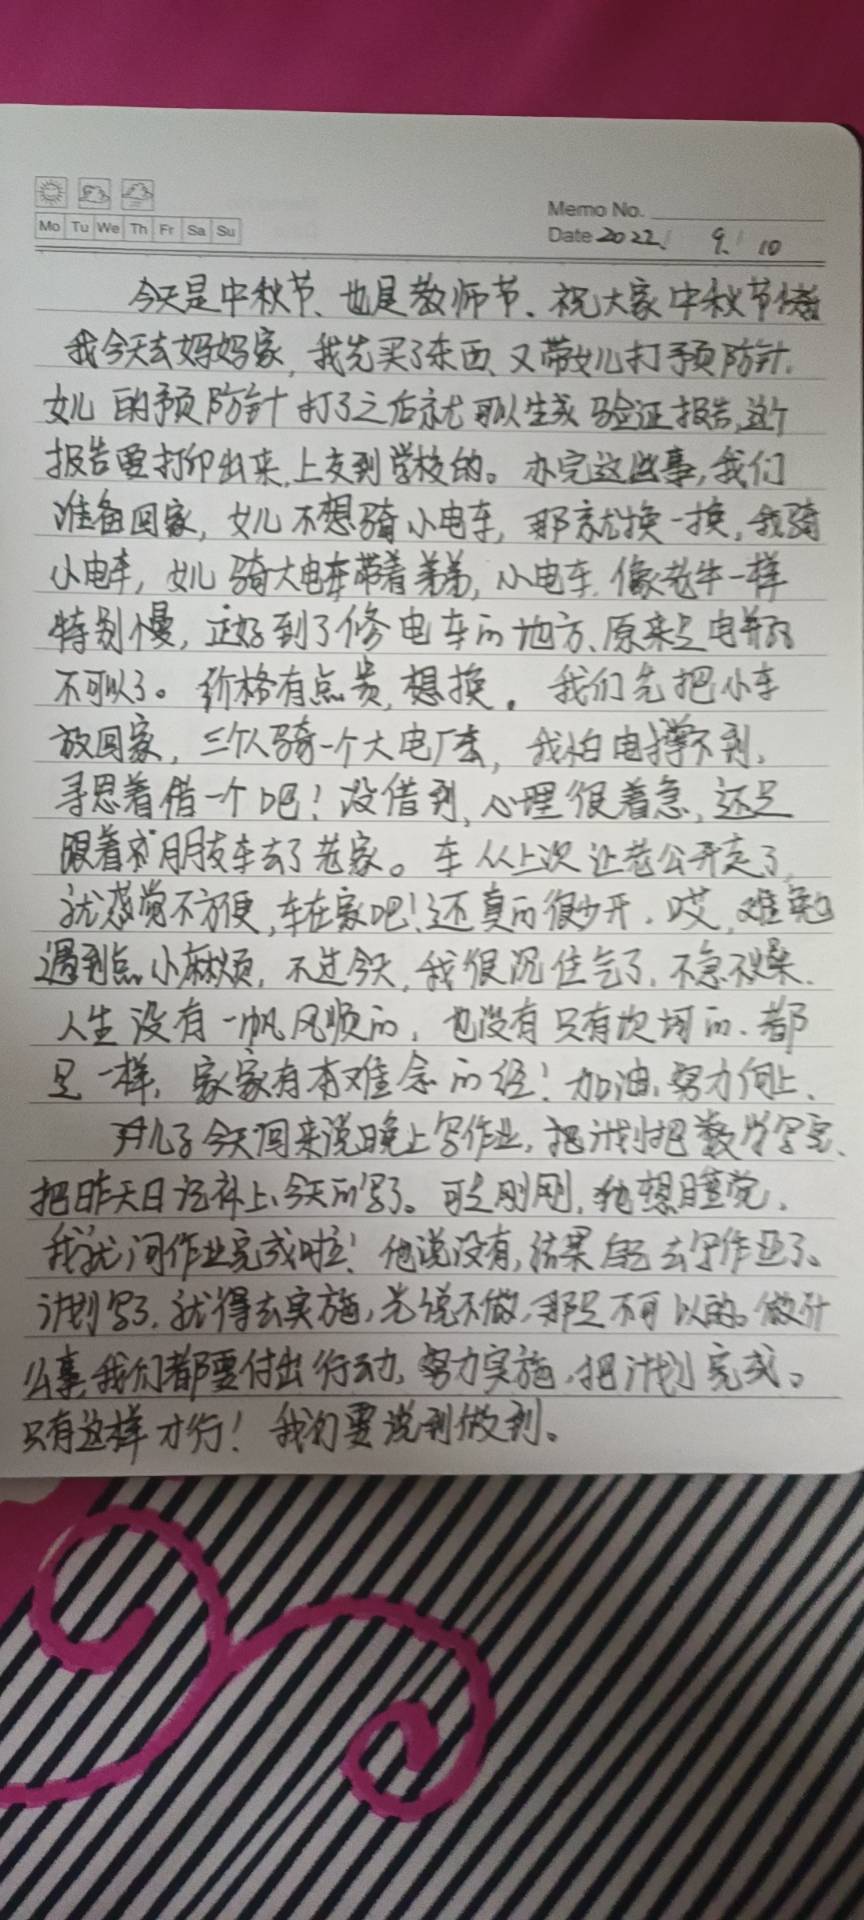 Memo No.
Mo Tu We Th Fr Sa Su
Date 2022. 9. 10
今天是中秋节、也是教师节、祝大家中秋节
我今天去妈妈家，我先买了东西、又带女儿打预防针.
女儿的预防针打了之后就可以生成验证报告,这个
报告要打印出来,上交到学校的。办完这些事,我们
准备回家，女儿不想骑小电车，那就换一换，我骑
小电车，女儿骑大电车带着弟弟，小电车像老牛一样
特别慢，正好到了修电车的地方、原来是电瓶
不可以了。价格有点贵,想换。我们先把小车
放回家，三个人骑一个大电车，我怕电撑不到,
寻思着借一个吧！没借到,心理很着急,还是
跟着朋友车去了老家。车从上次让老公开走了,
就感觉不方便,车在家吧!还真的很少开.哎,难免
遇到点小麻烦，不过今天,我很沉住气了,不急不躁.
人生没有一帆风顺的，也没有只有坎坷的、都
是一样，家家有本难念的经！加油,努力向上、
对儿子今天回来说晚上写作业,把计划把数学写完、
把昨天日记补上、今天的写了。可是刚刚，他想睡觉,
我就问作业完成啦！他说没有,结果自己去写作业了。
计划写了,就得去实施,光说不做,那是不可以的。做什
么事,我们都要付出行动,努力实施,把计划完成。
只有这样才行！我们要说到做到。